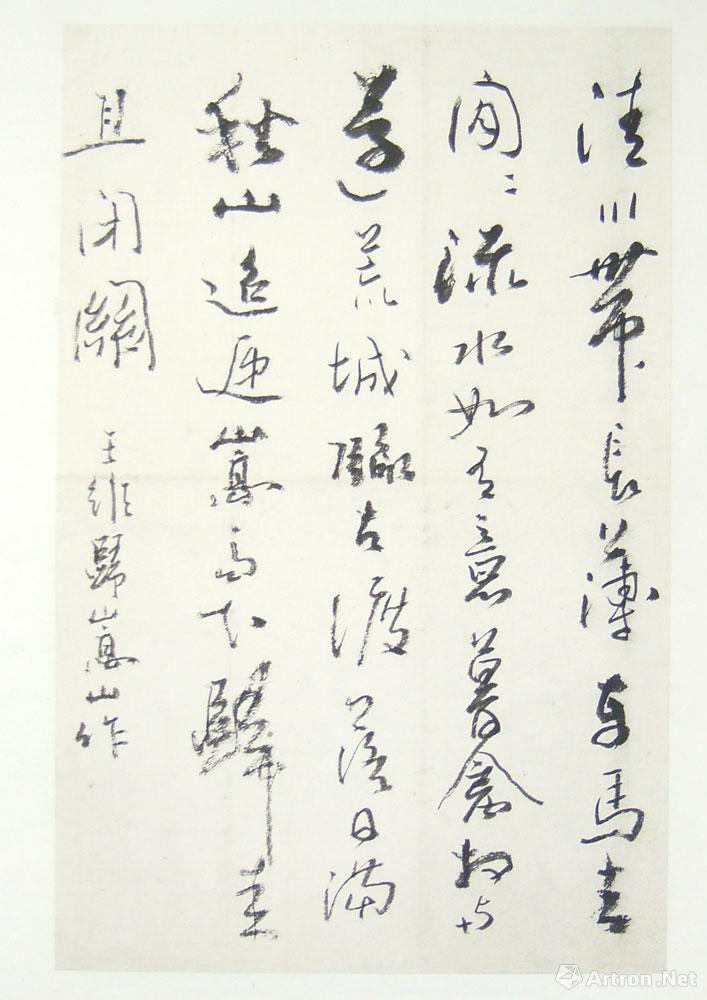 清川帶長薄車馬去
閑〻流水如有意暮禽相与
還荒城臨古渡落日滿
秋山迢遞嵩高下歸来
且閉關
王維歸嵩山作
Artron.Net